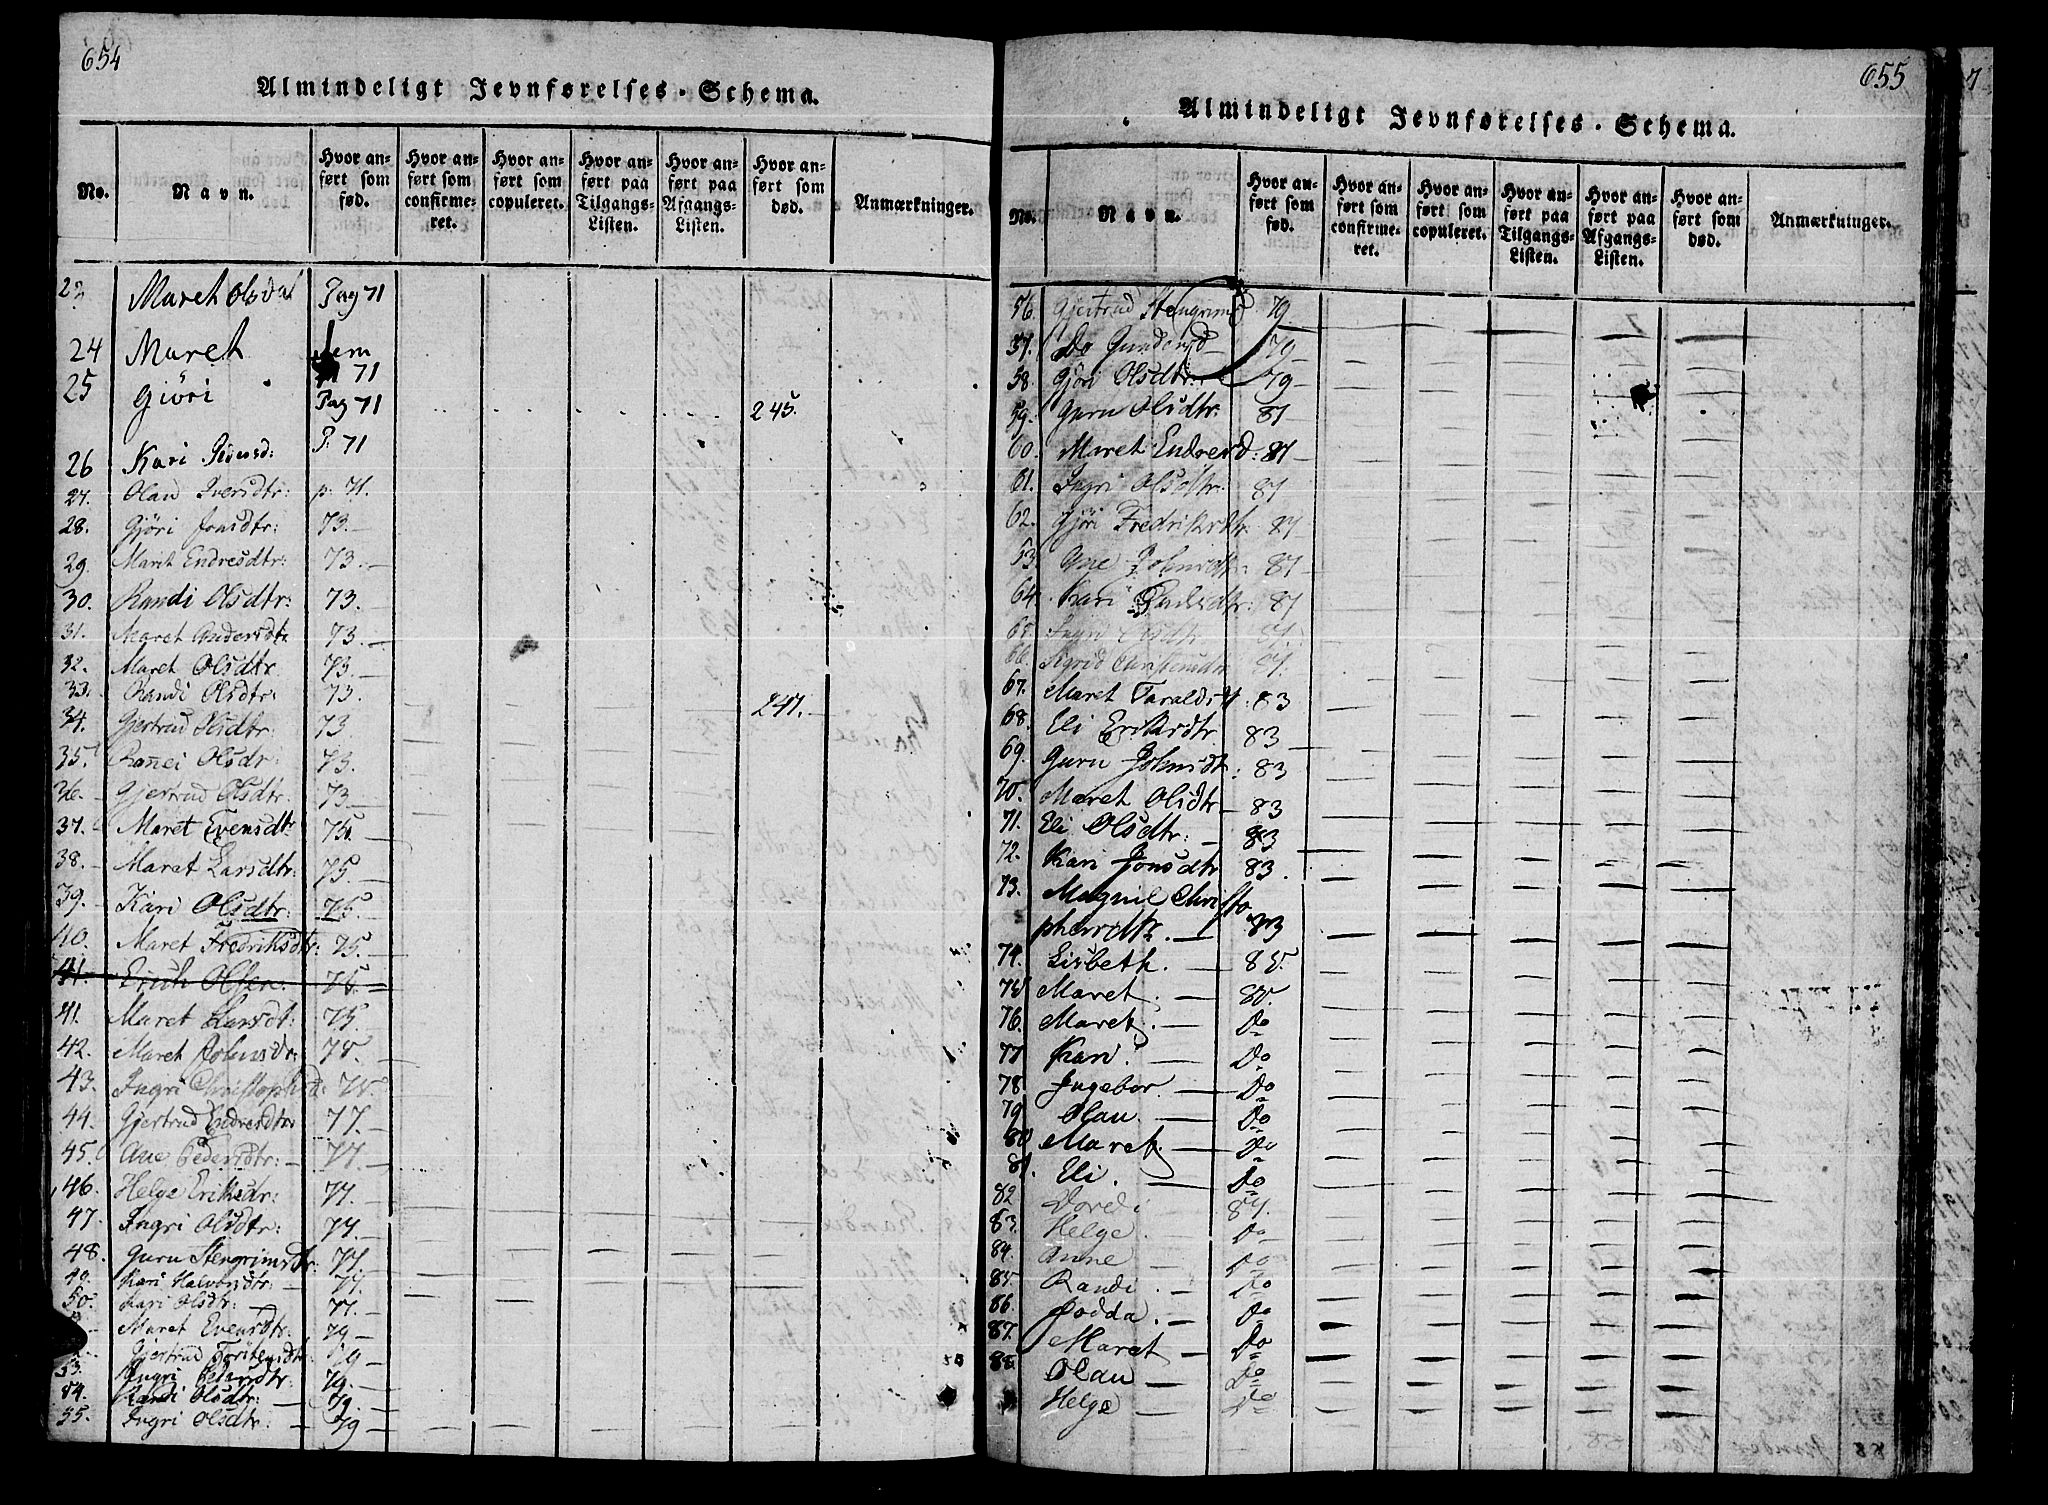 654
Almindeligt Jevnførelses-Schema.
No. Navn. Hvor anført som fød. Hvor anført som confirmeret. Hvor anført som copuleret. Hvor anført paa Tilgangs-Listen. Hvor anført paa Afgangs-Listen. Hvor anført som død. Anmærkninger.
Maret Olsd Pag 71
24 Maret 71
25 Giöri Pag 71 245.
26 Kari P. 71
27. Olau Iversdtr: p. 71.
28. Gjöri Jonsdtr: 73.
29. Marit Endresdtr: 73.
30. Randi Olsdtr: 73.
31. Maret Andersdtr 73.
32. Maret Olsdtr 73.
33. Randi Olsdtr: 73. 247.
34. Gjertrud Olsdtr: 73.
35. Olsdr: 73.
36. Gjertrud Olsdtr. 73.
37. Maret Evensdtr 75.
38. Maret Larsdtr: 75.
39. Kari Olsdtr: 75.
40. Maret Fredriksdtr: 75.
41. Erich Olsen: 75.
41. Maret Larsdt: 75.
42. Maret Johnsdr: 75.
43. Ingri 75.
44. Gjertrud Endresdtr 77.
45. Ane Pedersdtr: 77.
46. Helge Eriksdr: 77.
47. Ingri Olsdtr: 77.
48. Guru Stengrimsdtr: 77.
49. Kari Halvorsdtr: 77.
50. Kari Olsdtr: 77.
Maret Evensdtr: 79
Gjertrud Torstensdtr: 79
53. Ingri Pedersdtr: 79.
54. Randi Olsdtr: 79.
55. Ingri Olsdtr: 79
655
Almindeligt Jevnførelses-Schema.
No. Navn. Hvor anført som fød. Hvor anført som confirmeret. Hvor anført som copuleret. Hvor anført paa Tilgangs-Listen. Hvor anført paa Afgangs-Listen. Hvor anført som død. Anmærkninger.
56. Gjertrud Stengrimsd 79
57. Do Gundersd 79
58. Gjöri Olsdtr: 79
59. Guru Olsdtr: 81
60. Maret Endresd: 81
61. Ingri Olsdtr. 81
62. Gjöri Fredriksdtr. 81
63. Ane Johnsdtr: 81
64. Kari Paulsdtr: 81
65. Ingrid Olsdtr 81.
66. Sigrid 81.
67. Maret Taraldsd: 83
68. Eli Eriksdtr. 83
69. Guru Johnsdt: 83
70. Maret Olsdtr 83
71. Eli Olsdtr: 83
72. Kari Jonsdtr 83.
73. Magnil Christo
phersdtr. 83
74. Lisbeth. 85.
75. Maret. 85.
76. Maret. Do
77. Kari. Do
78. Ingebor. Do
79. Olau. Do
80. Maret. Do
81. Eli. Do
82 Dordi 87.
83. Helge. Do
84. Anne Do
85. Randi. Do
86. Dodda. Do
87. Maret Do
88. Olau Do
Helge Do